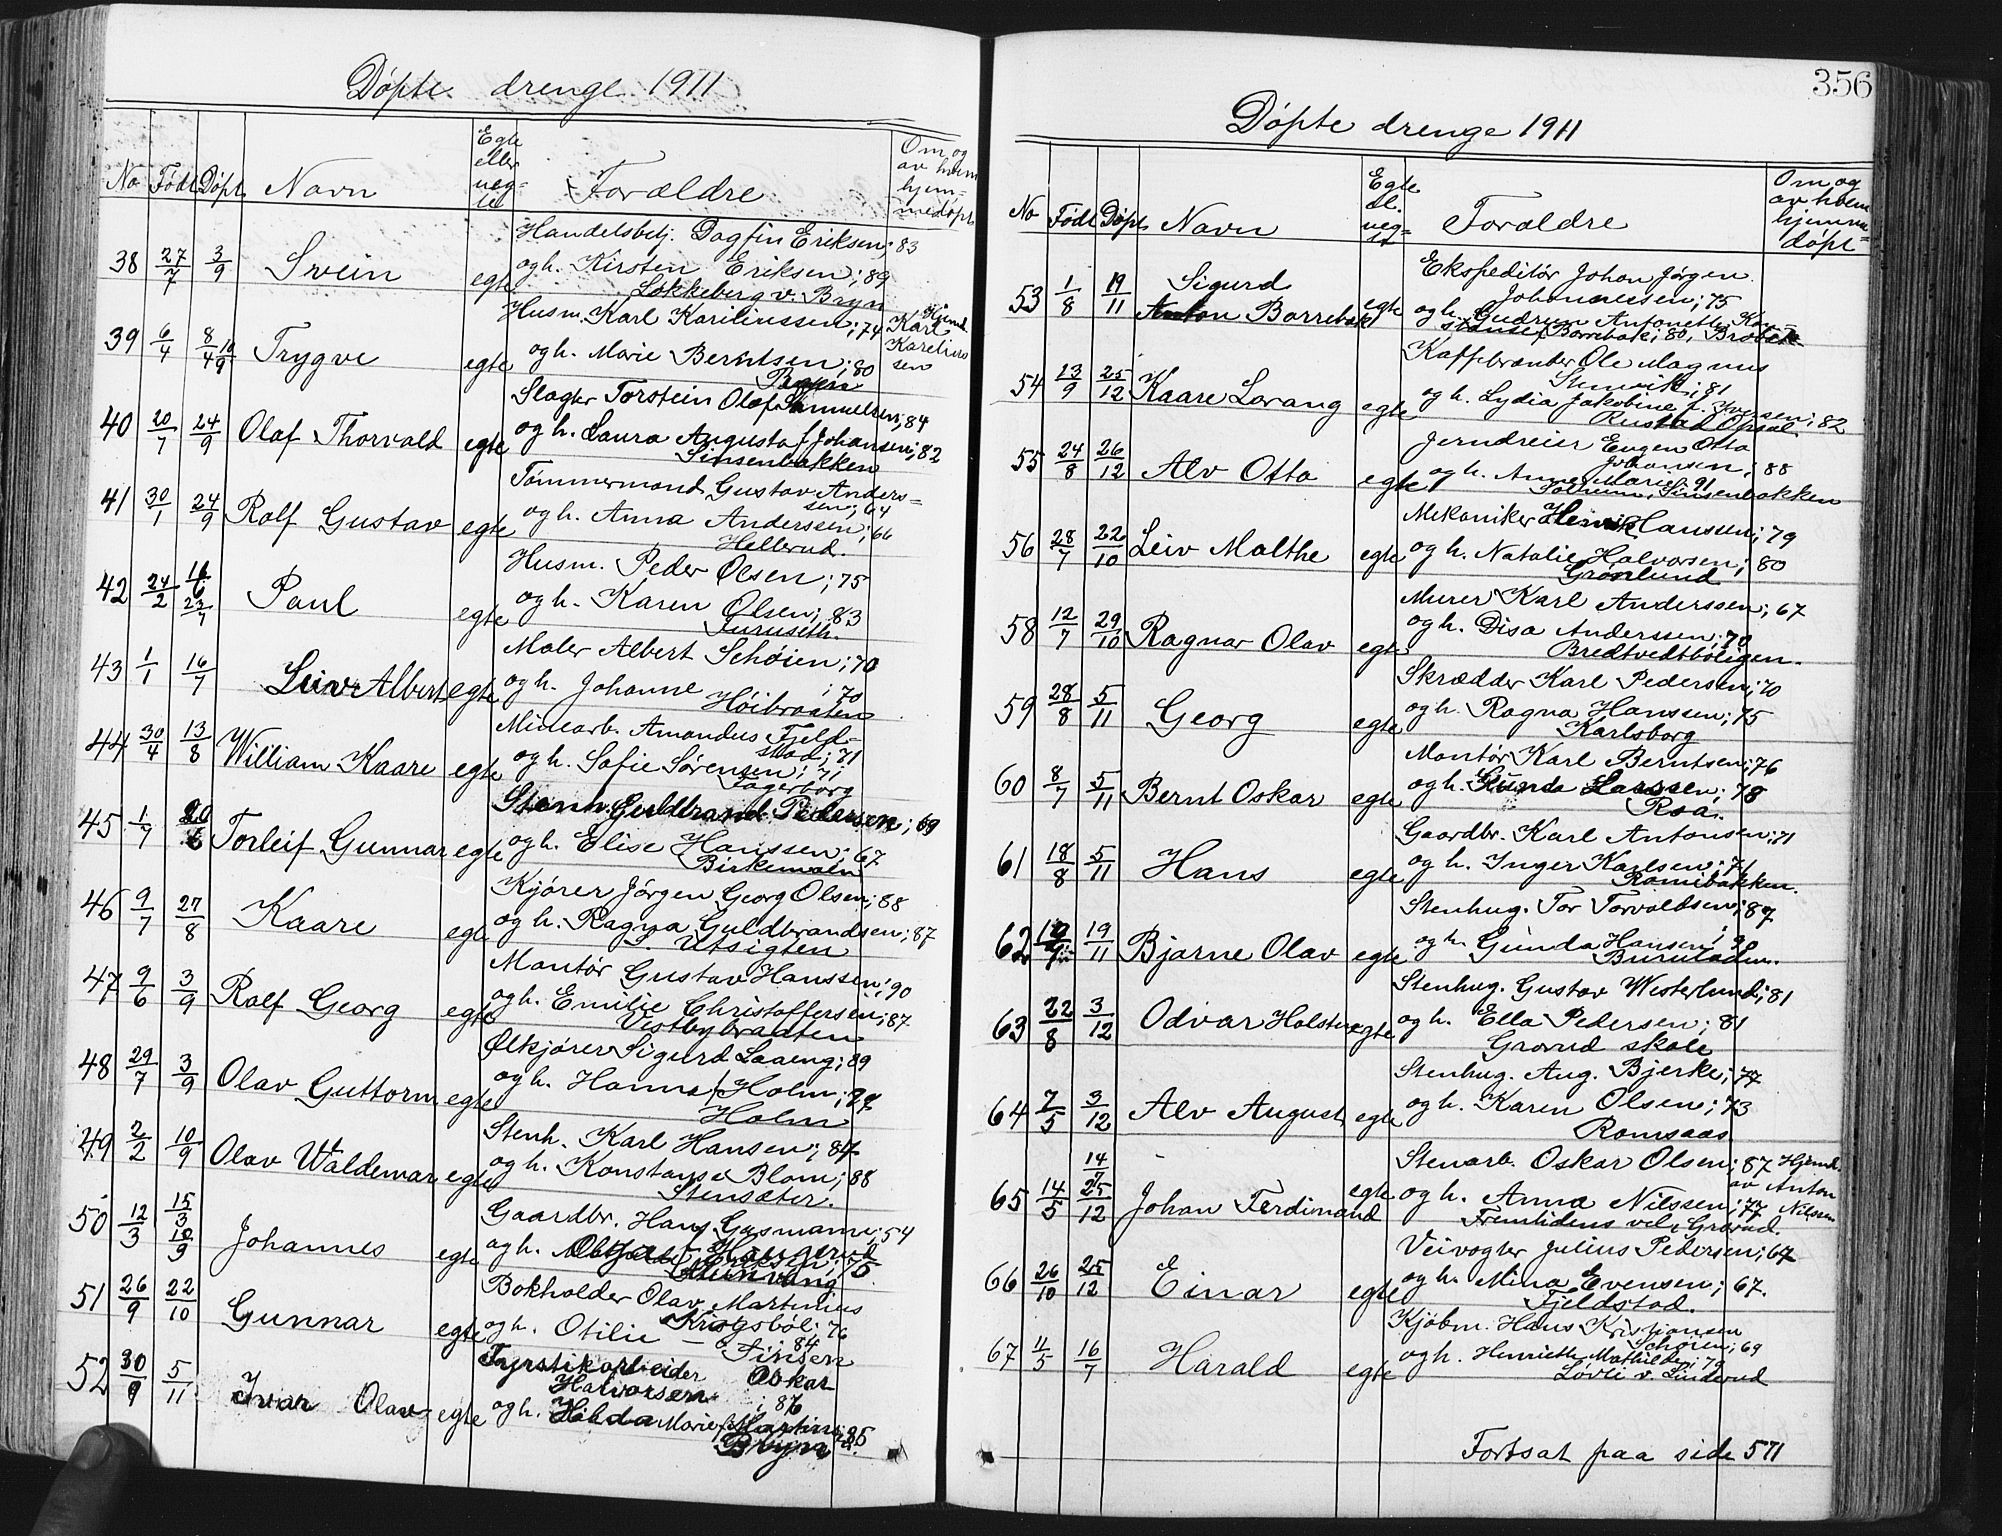 Døpte drenge 1911
No Født Døpt Navn Egte eller ueg- te Forældre Om og av hvem hjem- medøpt
38 27/7 3/9 Svein egte Handelsbetj. Dagfin Eriksen; 83
og h. Kirsten Eriksen; 89
Løkkeberg v. Bryn
39 6/4 8/4 10/9 Trygve egte Husm. Karl Kariliussen; 74 Hjemd. Karl Karelius sen
og h. Marie Berntsen; 80
Bryn
40 20/7 24/9 Olaf Thorvald egte Slagter Torstein Olaf Samuelsen; 84
og h. Laura Augusta f. Johansen; 82
Sinsenbakken
41 30/1 24/9 Rolf Gustav egte Tømmermand Gustav Anders-
sen; 64
og h. Anna Anderssen; 66
Hellerud.
42 24/2 16/6 23/7 Paul egte Husm. Peder Olsen; 75
og h. Karen Olsen; 83
Furuseth.
43 1/1 16/7 Leiv Albert egte Maler Albert Schøien; 70
og h. Johanne ; 70
Høibraaten
44 30/4 13/8 William Kaare egte Minearb. Amandus Fjeld-
stad; 71
og h. Sofie Sørensen; 71
Fagerborg
45 1/7 20/6 Torleif Gunnar egte Guldbrand Pedersen; 69
og h. Elise Hanssen; 67
46 9/7 27/8 Kaare egte Kjører Jørgen Georg Olsen; 88
og h. Ragna Guldbrandsen; 87
Utsigten
47 9/6 3/9 Rolf Georg egte Montør Gustav Hanssen; 90
og h. Emilie Christoffersen; 87
Vestbybraaten
48 29/7 3/9 Olav Guttorm egte Ølkjører Sigurd Laaeng; 89
og h. Hanna f. Holm; 87
Holm
49 2/2 10/9 Olav Waldemar egte Stenh. Karl Hansen; 87
og h. Konstanse Blom; 88
Stensæter.
50 12/3 15/3 10/9 Johannes egte Gaardbr. Hans Gasmann; 54
og h. Haugerud
51 26/9 22/10 Gunnar egte Bokholder Olav Martinius
Krogsbøl; 76
og h. Otilie — 84
Sinsen
52 30/9 5/11 Ivar Olav egte Fyrstikarbeider Oskar
Halvorsen ; 86
og h. Hilda Marie f. Martins; 85
Bryn
356
Døpte drenge 1911
No Født Døpt Navn Egte el. ueg- te Forældre Om og av hvem hjemme- døpt
53 1/8 19/11 Sigurd Anton Borrebæk egte Ekspeditør Johan Jørgen
Johannesen; 75
og h. Gudrun Antonette Kon-
stanse f. Borrebæk; 80, Brobæk
54 13/9 25/12 Kaare Lorang egte Kaffebrænder Ole Magnus
Stenvik; 81
og h. Lydia Jakobine f. Iversen; 82
Rustad Opsal
55 24/8 26/12 Alv Otto egte Jerndreier Eugen Otto
Johansen; 88
og h. Anne Marie; 91
Solrum, Sinsenbakken
56 28/7 22/10 Leiv Malthe egte Mekaniker Henrik Hanssen; 79
og h. Natalie Halvorsen; 80
Grønlund
58 12/7 29/10 Ragnar Olav egte Murer Karl Anderssen; 67
og h. Disa Anderssen; 70
Bredtvedtboligen.
59 28/8 5/11 Georg egte Skrædder Karl Pedersen; 70
og h. Ragna Hanssen; 75
Karlsborg
60 8/7 5/11 Bernt Oskar egte Montør Karl Berntsen; 76
og h. Gunda Larssen; 78
Roa.
61 18/8 5/11 Hans egte Gaardbr. Karl Antonsen; 71
og h. Inger Karlsen; 71
Romibakken.
62 19/11 Bjarne Olav egte Stenhug. Tor Torvaldsen; 87
og h. Gunda Hansen;
63 22/8 3/12 Odvar Holstein egte Stenhug. Gustav Westerlund; 81
og h. Ella Pedersen; 81
Grorud skole
64 7/5 3/12 Alv August egte Stenhug. Aug. Bjerke; 77
og h. Karen Olsen; 73
Romsaas
65 14/5 14/7 25/12 Johan Ferdinand egte Stenarb. Oskar Olsen; 87 Hjemd. av Anton Nilsen
og h. Anna Nilssen; 77
Fremtidens vel, Grorud.
66 26/10 25/12 Einar egte Veivogter Julius Pedersen; 67
og h. Mina Evensen; 67.
Fjeldstad.
67 4/5 16/7 Harald egte Kjøbm. Hans Kristiansen
Schøien; 69
og h. Henriette Mathilde; 79
Løvli v. Linderud
Fortsat paa side 571